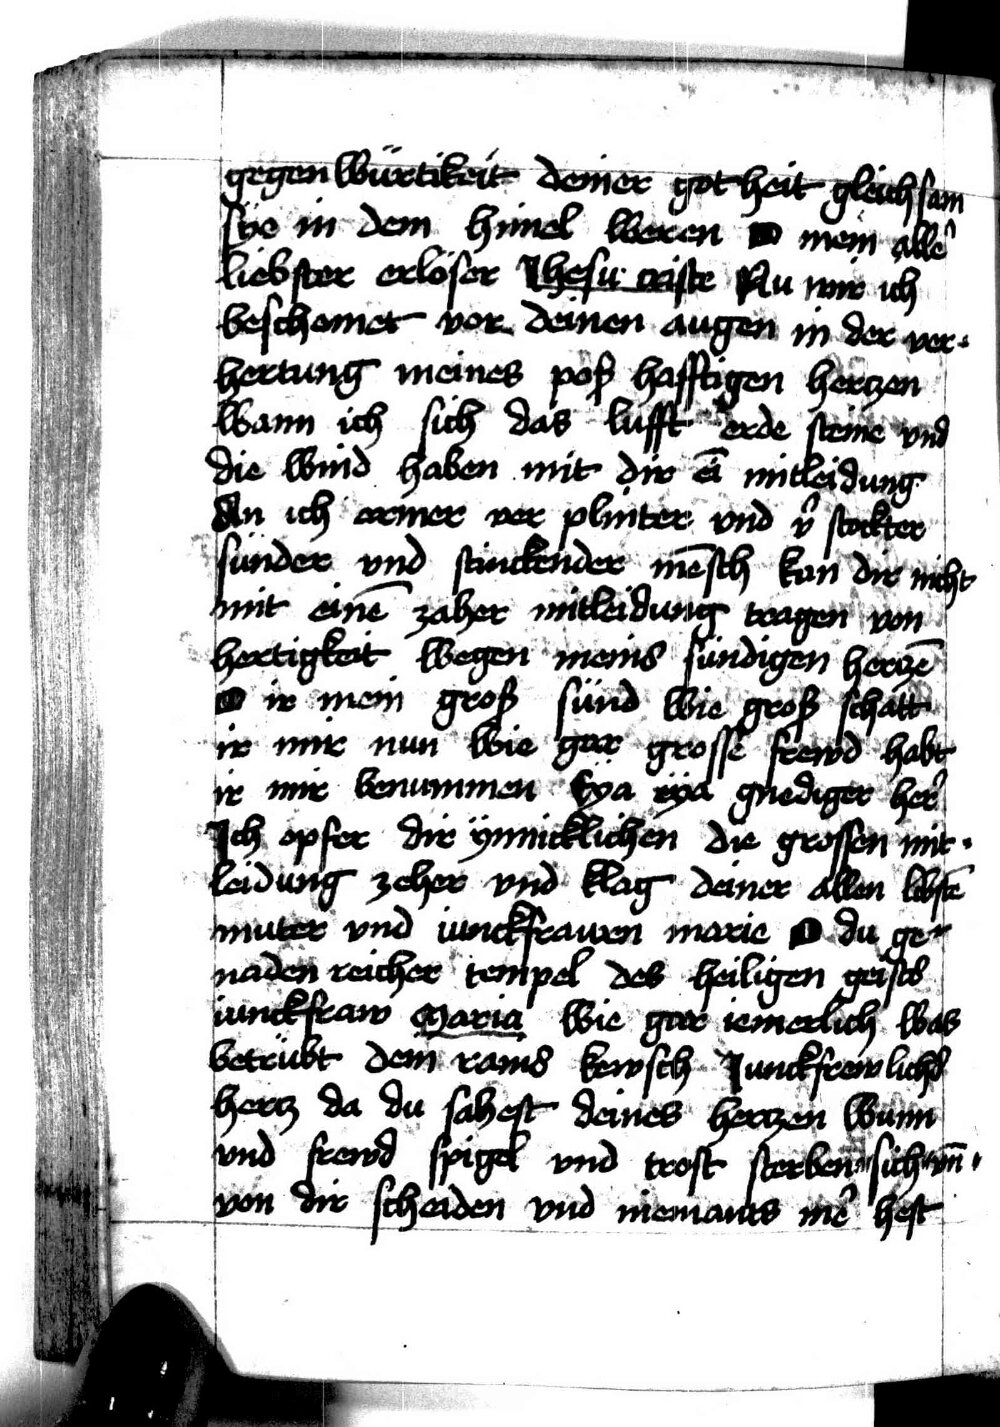 gegen würtikeit deiner got heit gleich sam
sye in dem himel weren O mein alle᷑
liebster erlöser Jhesu criste Nu wir ich
beschemet vor deinen augen in der ver-
hertung meines poß hafftigen hertzen
wann ich sich das lufft erde steine vnd
die wind haben mit dir ei᷑ mitleidung
An ich armer ver plinter vnd v᷑ stockter
sünder vnd stinckender me̅sch kan dir nicht
mit eine̅ zaher mitleidung tragen von
hertigkeit wegen meins sündigen hertze̅
O ir mein groß sünd wie groß schatt
ir mir nun wie gar grosse frewd habt
ir mir benummen Eya eya gnediger her᷑
Ich opfer dir ynnicklichen die grossen mit-
leidung zeher vnd klag deiner allen libste̅
muter vnd iunckfrauen marie O du ge-
naden reicher tempel des heiligen geists
iunckfraw Maria wie gar iemerlich was
betrübt dein rains kewsch Junckfrewlichs
hertz da du sahest deines hertzen wunn
vnd frewd spigel vnd trost sterben sich vn̅
von dir scheiden vnd niemants me᷑ hest